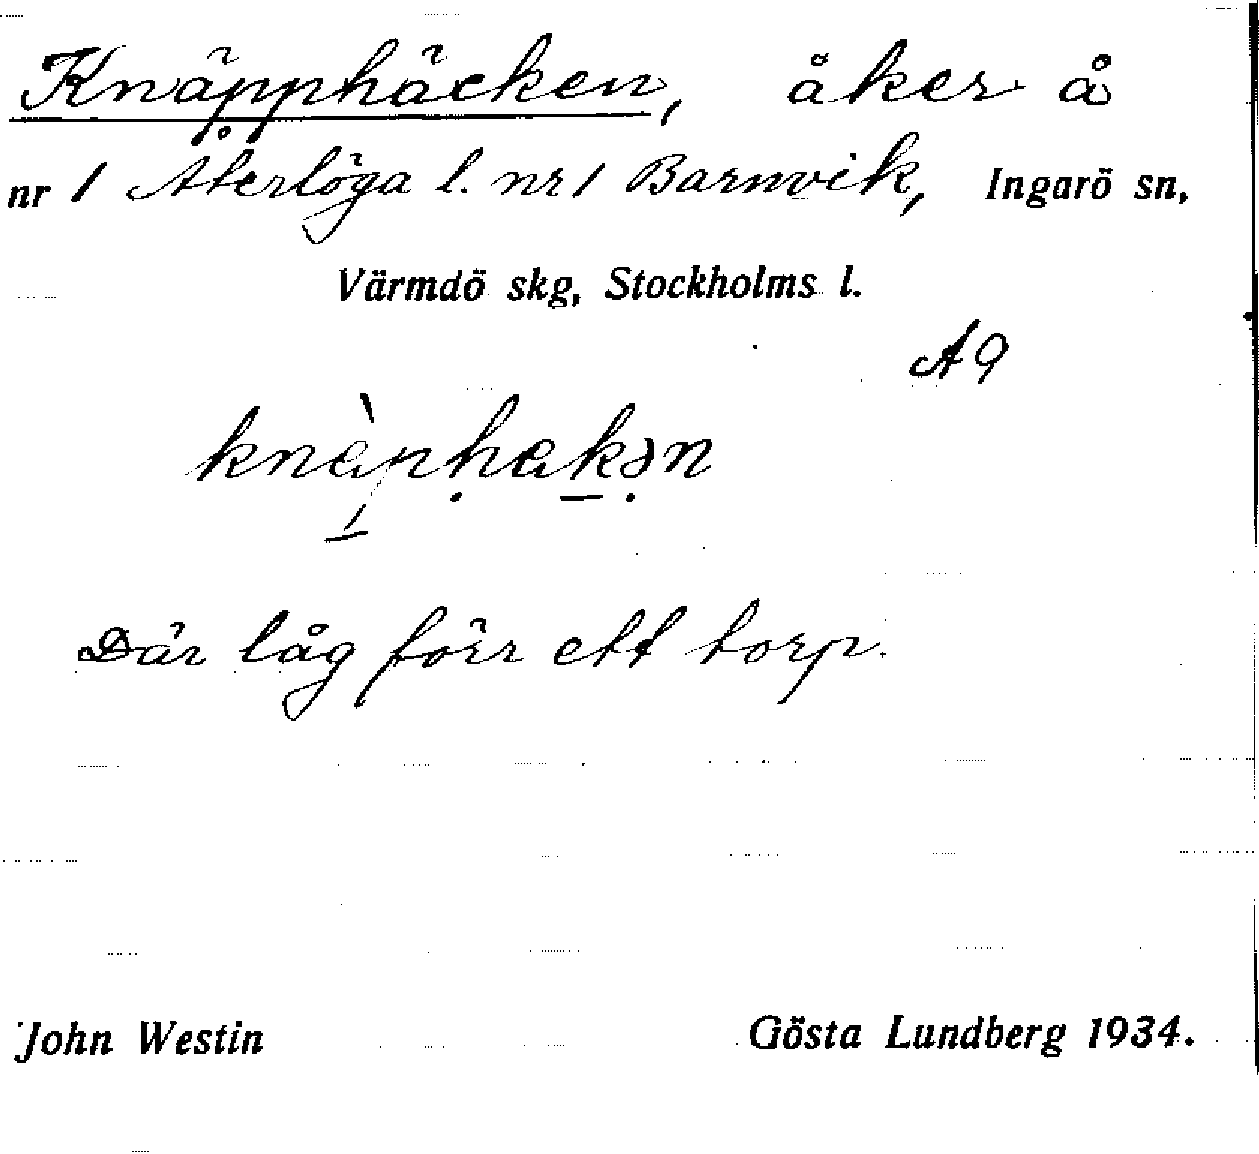 Knäpphäcken, åker å
nr 1 Återlöga l. nr 1 Barnvik, Ingarö sn,
Värmdö skg, Stockholms l.
A9
knàphakən
Där låg förr ett torp.
John Westin Gösta Lundberg 1934.